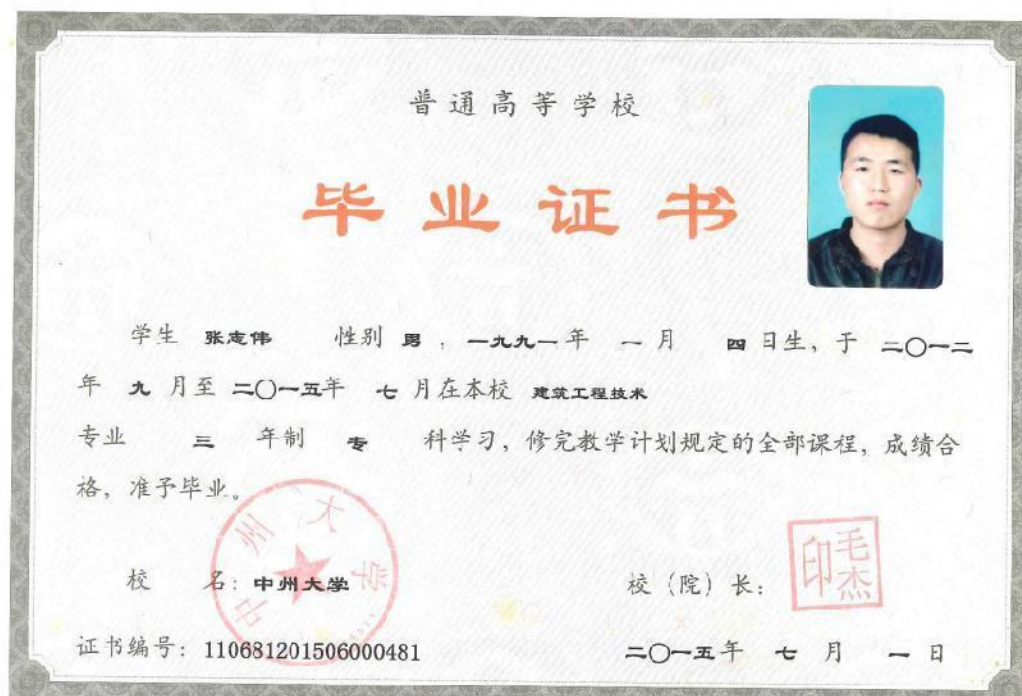 普通高等学校
毕业证书
学生 张志伟 性别 男 ，一九九一年 一 月 四 日生，于 二〇一二
年 九 月至 二〇一五年 七 月在本校 建筑工程技术
专业 三 年制 专 科学习，修完教学计划规定的全部课程，成绩合
格，准予毕业。
中州大学
校 名：中州大学
校（院）长：
毛杰印
证书编号：110681201506000481
二〇一五年 七 月 一 日